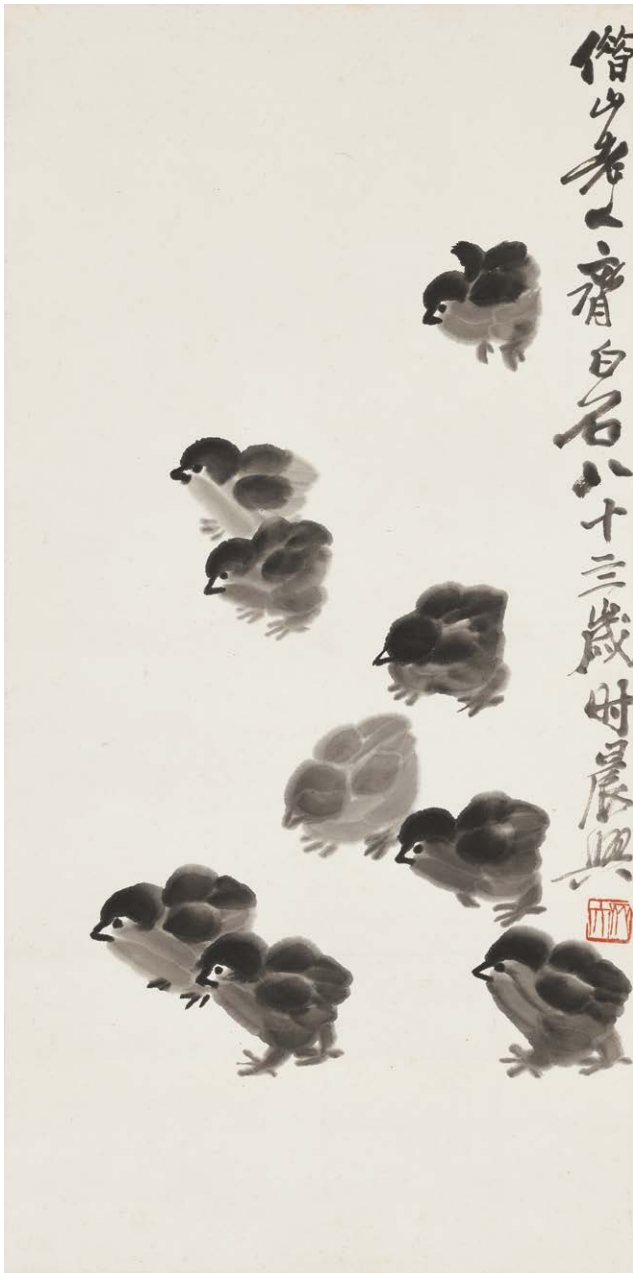 借山老人齊白石八十三歲时晨興